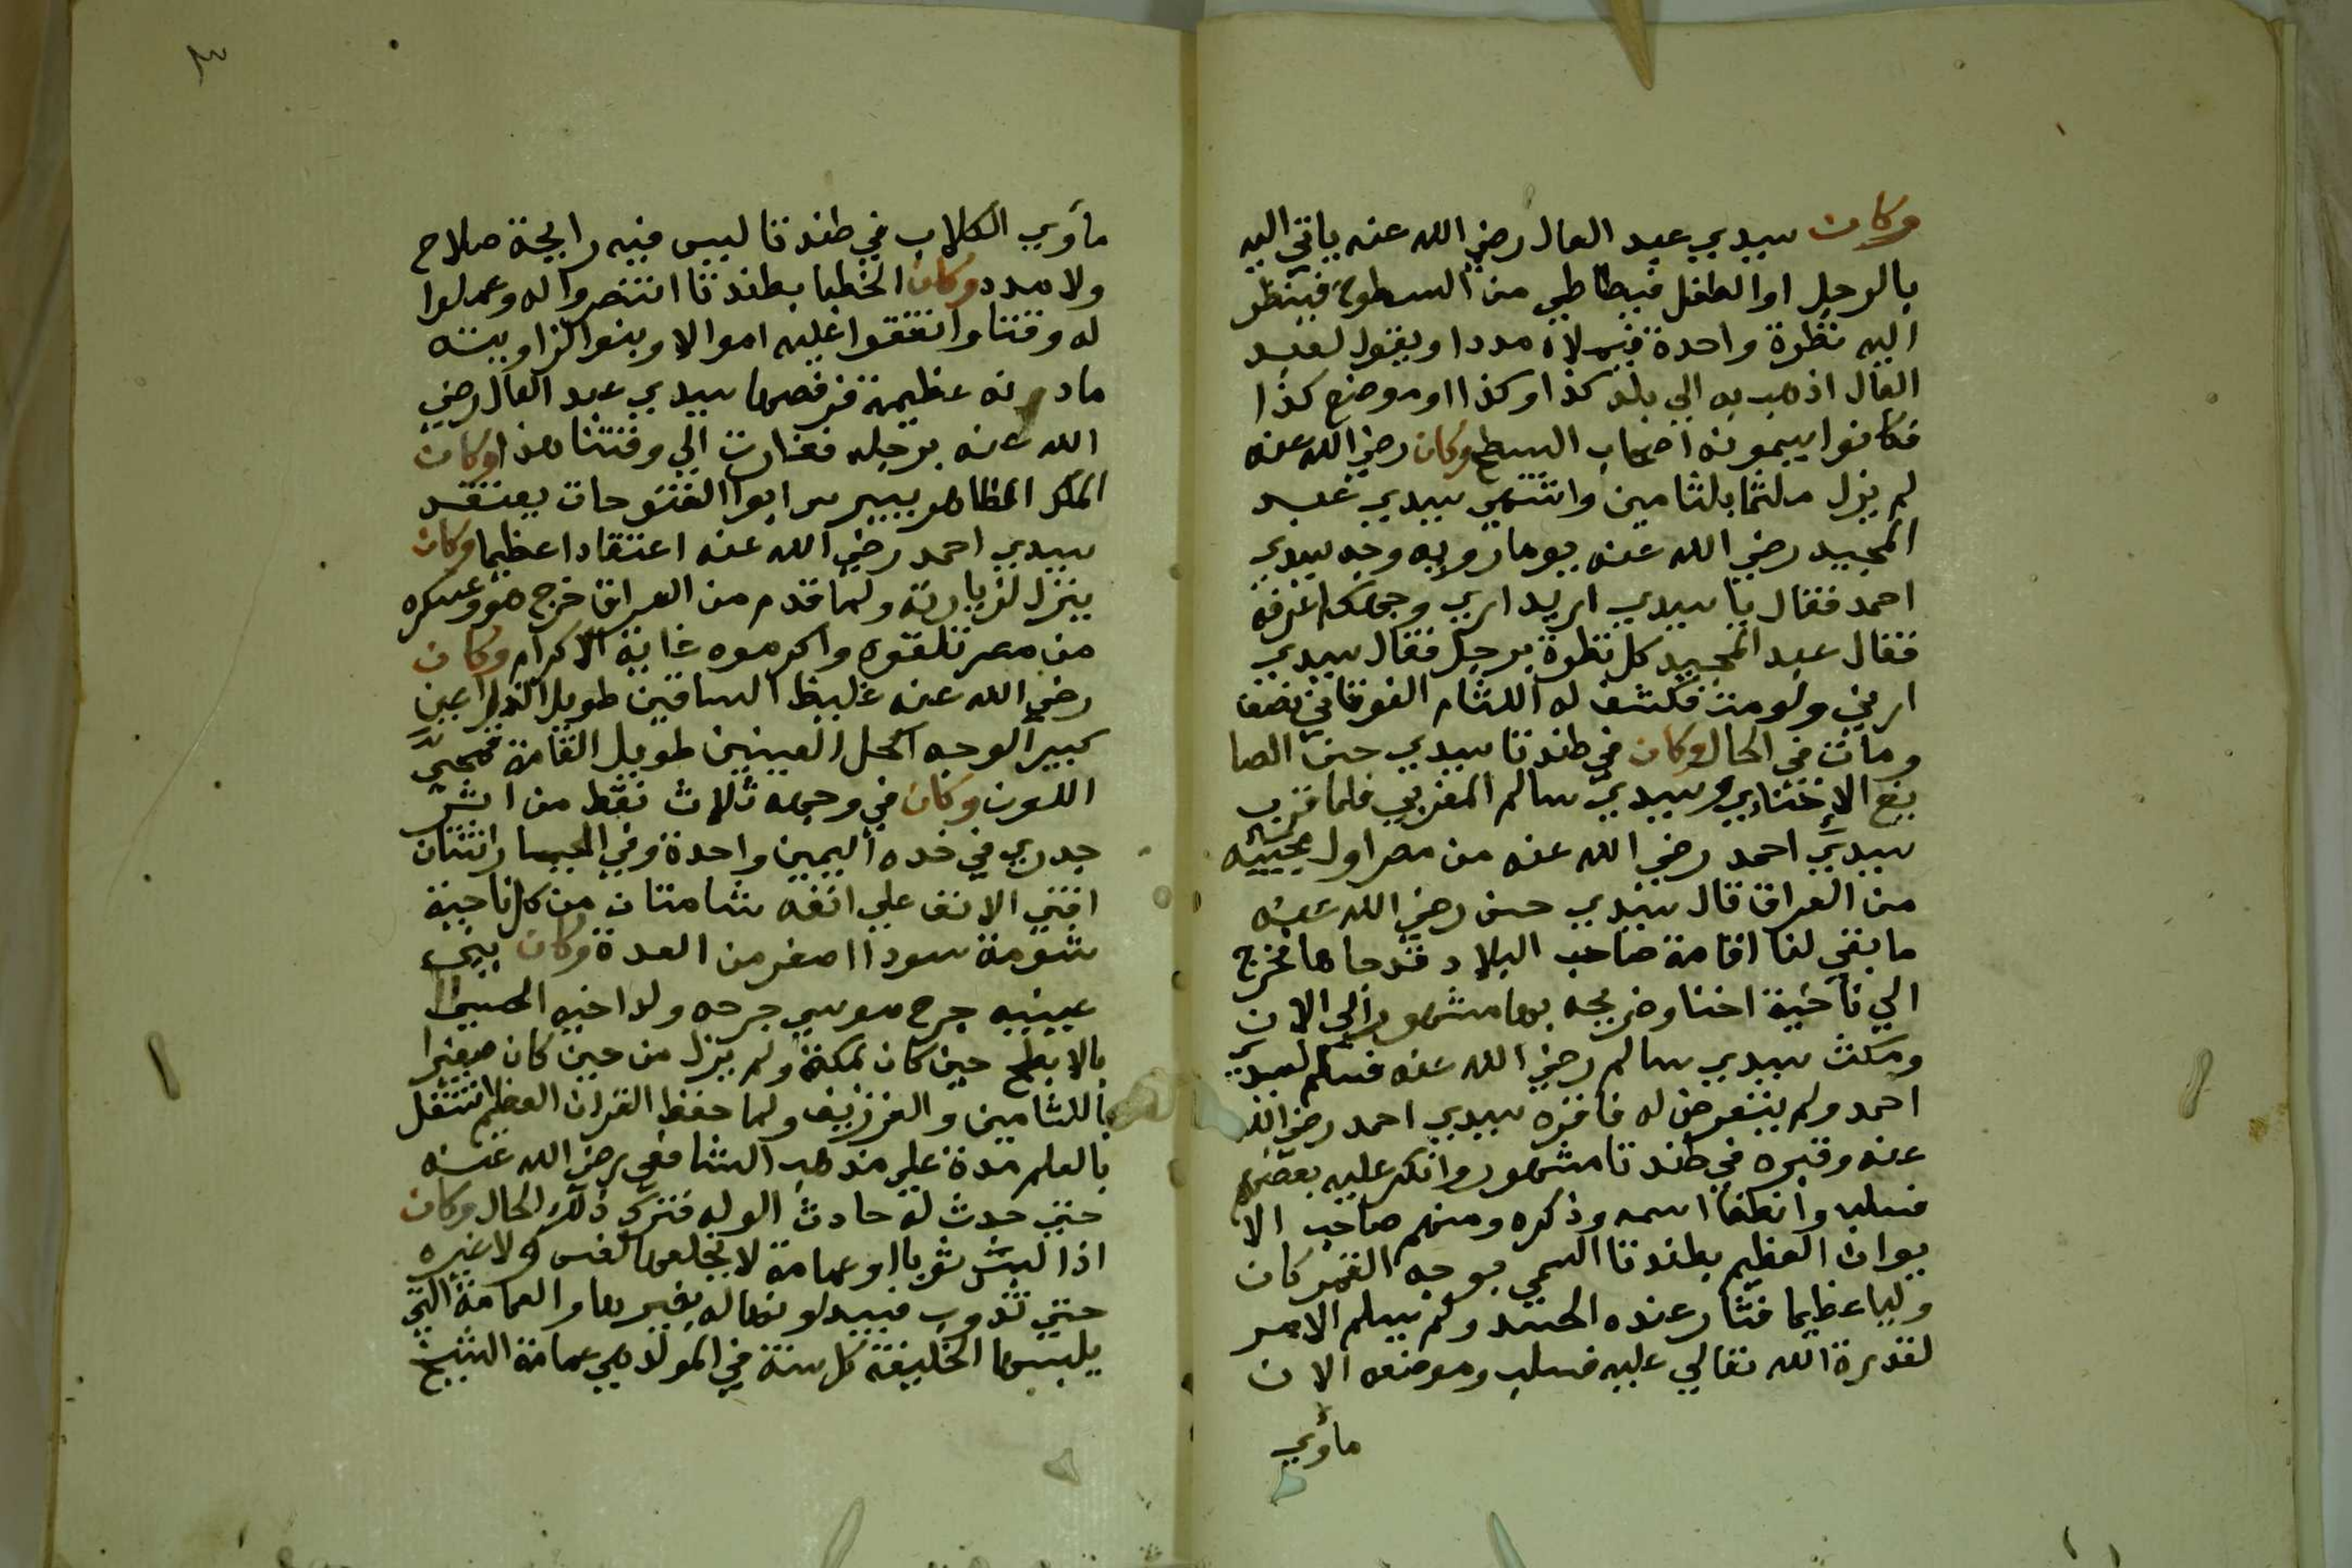 وكان سيدي عبد العال رضي الله عنه ياتي اليه
بالرجل او الطفل فيطاطي من السطوح فينظر
اليه نظرة واحدة فيملاه مددا ويقول لعبد
العال اذهب به الي بلد كذا وكذا او موضع كذا
فكانوا يسمونه اصحاب السطح وكان رضي الله عنه
لم يزل ملثما بلثامين واشتهي سيدي عبد
المجيد رضي الله عنه يوما روية وجه سيدي
احمد فقال يا سيدي اريد اري وجهك اعرفه
فقال عبد المجيد كل نظرة برجل فقال سيدي
ارني ولو مت فكشف له اللثام الفوقاني فصعق
ومات في الحال وكان في طندتا سيدي حسن الصا
يغ الاخنايي وسيدي سالم المغربي فلما قرب
سيدي احمد رضي الله عنه من مصر اول مجييه
من العراق قال سيدي حسن رضي الله عنه
ما بقي لنا اقامة صاحب البلاد قد جاها فخرج
الي ناحية اخنا وضريحه بها مشهور الي الان
ومكث سيدي سالم رضي الله عنه فسلم لسيدي
احمد ولم يتعرض له فاقره سيدي احمد رضي الله
عنه وقبره في طندتا مشهور وانكر عليه بعضهم
فسلب وانطفا اسمه وذكره ومنهم صاحب الا
يوان العظيم بطندتا المسمي بوجه القمر كان
وليا عظيما فثار عنده الحسد ولم يسلم الامر
لقدرة الله تعالي عليه فسلب وموضعه الان
مأوي
٣
مأوي الكلاب في طندتا ليس فيه رايحة صلاح
ولا مدد وكان الخطبا بطندتا انتصروا له وعملوا
له وقتا وانفقوا عليه اموالا وبنوا لزاويته
مادنه عظيمة فرفصها سيدي عبد العال رضي
الله عنه برجله فغارت الي وقتنا هذا وكان
الملك الظاهر بيبرس ابوا الفتوحات يعتقد
سيدي احمد رضي الله عنه اعتقادا عظيما وكان
ينزل لزيارته ولما قدم من العراق خرج هو وعسكره
من مصر تلقوه واكرموه غاية الاكرام وكان
رضي الله عنه غليظ الساقين طويل الذراعين
كبير الوجه اكحل العينين طويل القامة قمحي
اللون وكان في وجهه ثلاث نقط من اثر
جدري في خده اليمين واحدة وفي اليسار اثنتان
اقني الانف علي انفه شامتان من كل ناحية
شومة سودا اصغر من العدة وكان بين
عينيه جرح موسي جرحه ولد اخيه الحسين
بالابطح حين كان بمكة ولم يزل من حين كان صغيرا
باللثامين والغرزنيف ولما حفظ القران العظيم اشتغل
بالعلم مدة علي مذهب الشافعي رضي الله عنه
حتي حدث له حادث الوله فترك ذلك الحال وكان
اذا لبس ثوبا او عمامة لا يخلعها لغسل ولا غيره
حتي تذوب فيبدلونها له بغيرها والعمامة التي
يلبسها الخليفة كل سنة في المولد هي عمامة الشيخ